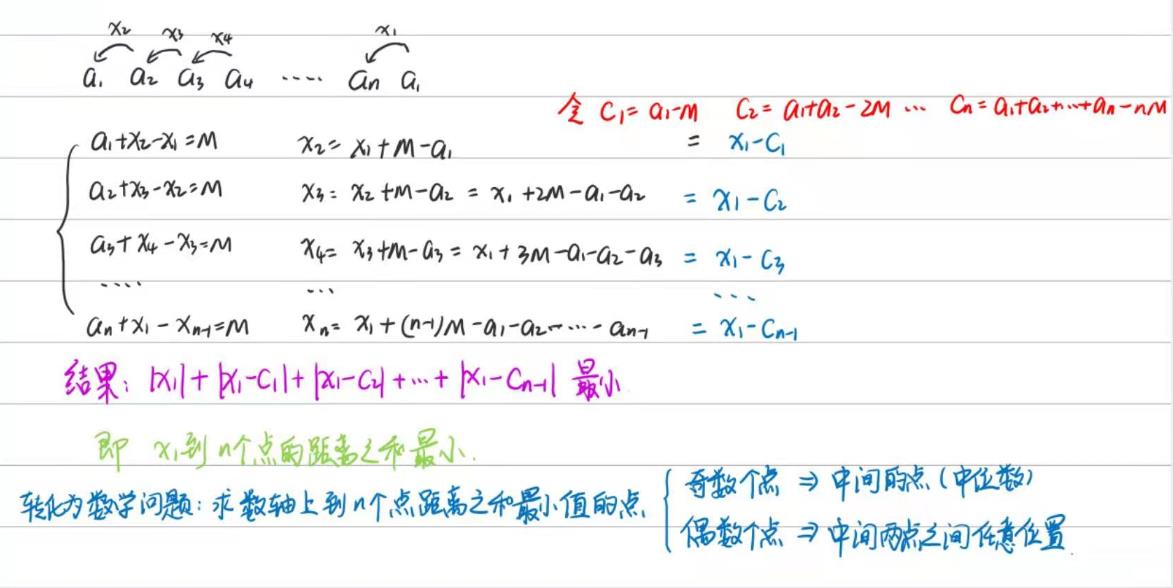 x₂ x₃ x₄ x₁
a₁ a₂ a₃ a₄ ····· aₙ a₁
令 C₁=a₁-M C₂=a₁+a₂-2M ··· Cₙ=a₁+a₂+···+aₙ-nM
a₁+x₂-x₁=M x₂=x₁+M-a₁ = x₁-C₁
a₂+x₃-x₂=M x₃=x₂+M-a₂=x₁+2M-a₁-a₂ = x₁-C₂
a₃+x₄-x₃=M x₄=x₃+M-a₃=x₁+3M-a₁-a₂-a₃ = x₁-C₃
···· ··· ···
aₙ+x₁-xₙ₋₁=M xₙ=x₁+(n-1)M-a₁-a₂-····-aₙ₋₁ = x₁-Cₙ₋₁
结果: |x₁|+|x₁-C₁|+|x₁-C₂|+···+|x₁-Cₙ₋₁| 最小
即 x₁到n个点的距离之和最小.
转化为数学问题: 求数轴上到n个点距离之和最小值的点
奇数个点 ⇒ 中间的点(中位数)
偶数个点 ⇒ 中间两点之间任意位置